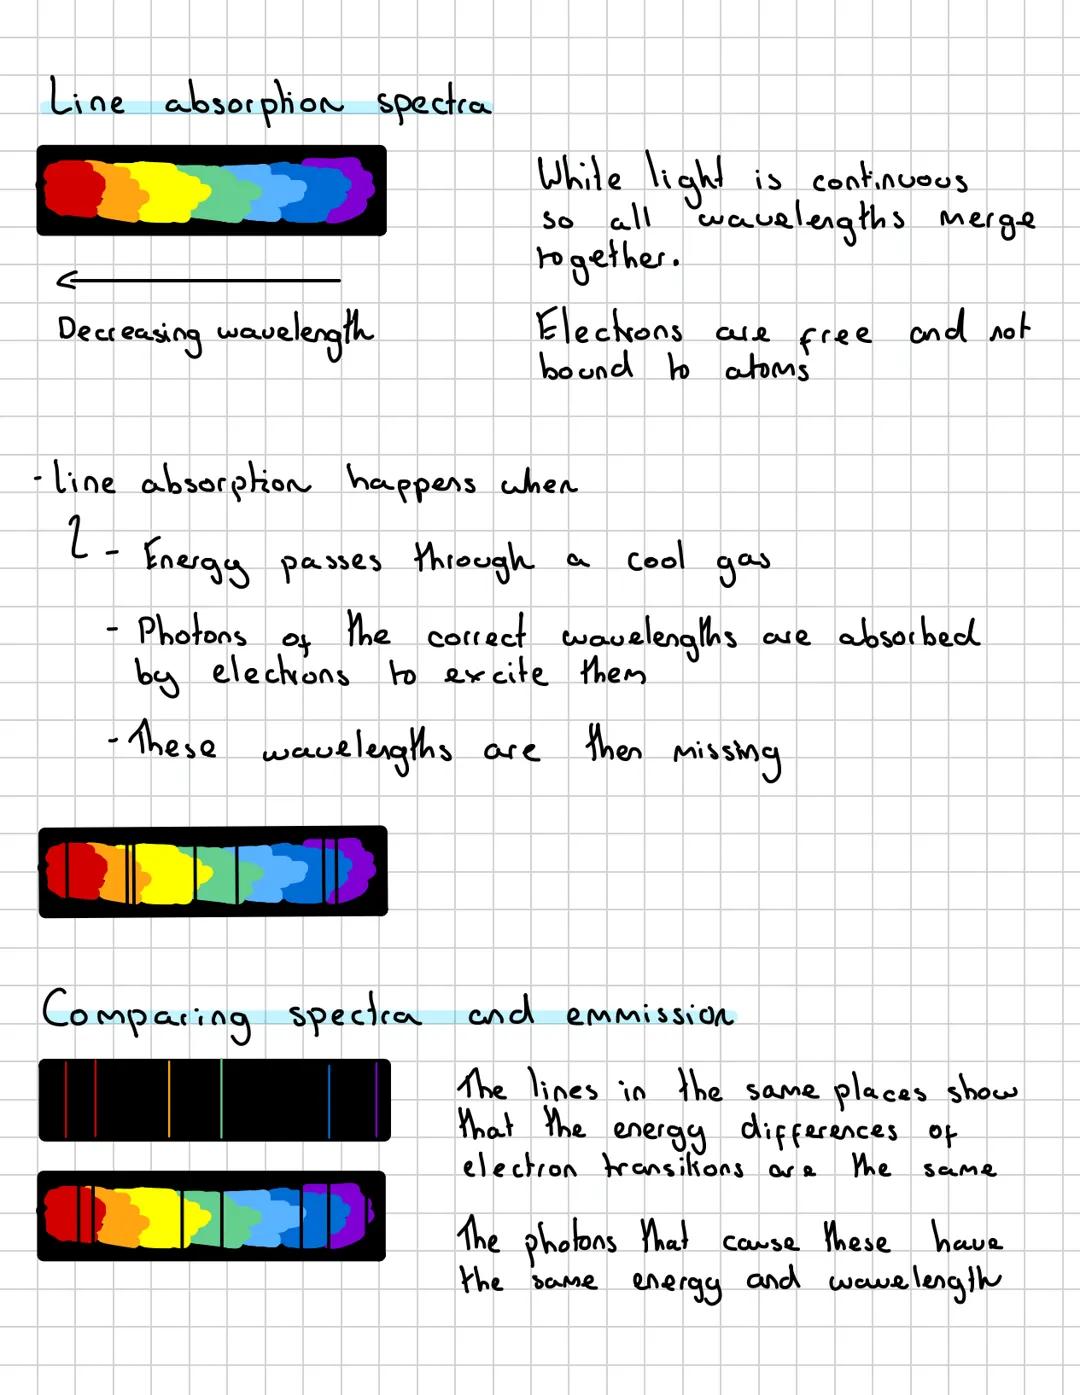 Line absorption spectra
White light is continuous
so all wavelengths merge
together.
Decreasing wavelength
Electrons are free and not
bound to atoms
- Line absorption happens when
- Energy passes through a cool gas
- Photons of the correct wavelengths are absorbed
by electrons to excite them
- These wavelengths are then missing
Comparing spectra and emmission
The lines in the same places show
that the energy differences of
electron transitions are the same
The photons that cause these have
the same energy and wavelength